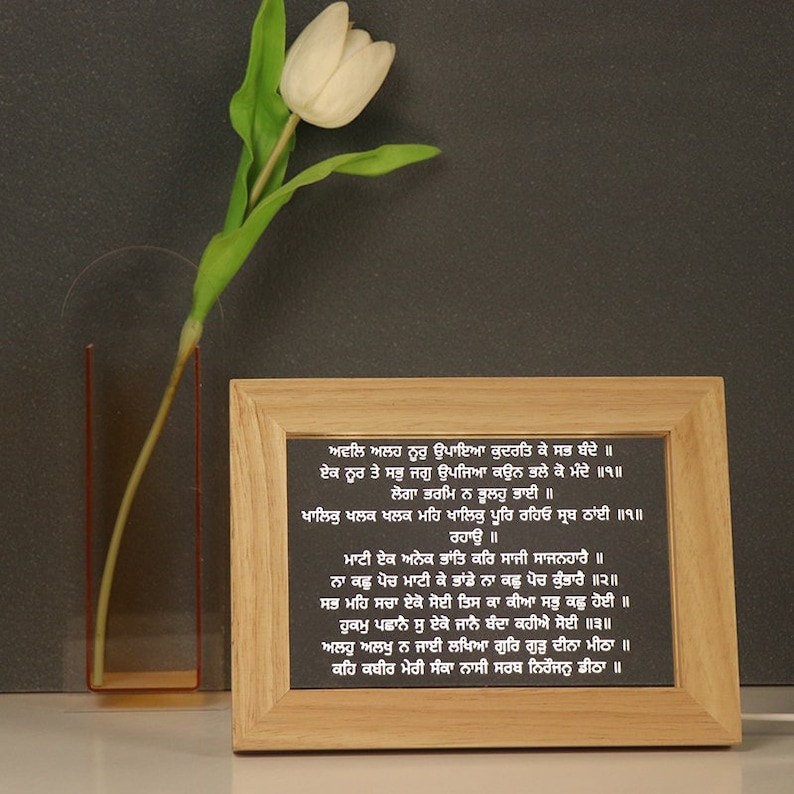 ਅਵਲਿ ਅਲਹ ਨੂਰੁ ਉਪਾਇਆ ਕੁਦਰਤਿ ਕੇ ਸਭ ਬੰਦੇ ॥
ਏਕ ਨੂਰ ਤੇ ਸਭੁ ਜਗੁ ਉਪਜਿਆ ਕਉਨ ਭਲੇ ਕੋ ਮੰਦੇ ॥੧॥
ਲੋਗਾ ਭਰਮਿ ਨ ਭੂਲਹੁ ਭਾਈ ॥
ਖਾਲਿਕੁ ਖਲਕ ਖਲਕ ਮਹਿ ਖਾਲਿਕੁ ਪੂਰਿ ਰਹਿਓ ਸ੍ਰਬ ਠਾਂਈ ॥੧॥
ਰਹਾਉ ॥
ਮਾਟੀ ਏਕ ਅਨੇਕ ਭਾਂਤਿ ਕਰਿ ਸਾਜੀ ਸਾਜਨਹਾਰੈ ॥
ਨਾ ਕਛੁ ਪੋਚ ਮਾਟੀ ਕੇ ਭਾਂਡੇ ਨਾ ਕਛੁ ਪੋਚ ਕੁੰਭਾਰੈ ॥੨॥
ਸਭ ਮਹਿ ਸਚਾ ਏਕੋ ਸੋਈ ਤਿਸ ਕਾ ਕੀਆ ਸਭੁ ਕਛੁ ਹੋਈ ॥
ਹੁਕਮੁ ਪਛਾਨੈ ਸੁ ਏਕੋ ਜਾਨੈ ਬੰਦਾ ਕਹੀਐ ਸੋਈ ॥੩॥
ਅਲਹੁ ਅਲਖੁ ਨ ਜਾਈ ਲਖਿਆ ਗੁਰਿ ਗੁੜੁ ਦੀਨਾ ਮੀਠਾ ॥
ਕਹਿ ਕਬੀਰ ਮੇਰੀ ਸੰਕਾ ਨਾਸੀ ਸਰਬ ਨਿਰੰਜਨੁ ਡੀਠਾ ॥